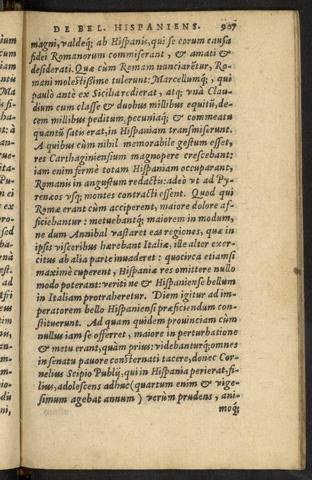 DE BEL. HISPANIENS. 907
magni, valdeq́; ab Hispanis, qui se eorum causa
fidei Romanorum commiserant, & amati &
desiderati. Quæ cùm Romam nunciarẽtur, Ro-
mani molestissimè tulerunt: Marcellumq́;, qui
paulò antè ex Sicilia redierat, atq; vnà Clau-
dium cum classe & duobus millibus equitũ, de-
cem millibus peditum, pecuniaq́; & commeatu
quantũ satis erat, in Hispaniam transmiserunt.
A quibus cùm nihil memorabile gestum esset,
res Carthaginiensium magnopere crescebant:
iam enim fermè totam Hispaniam occuparant,
Romanis in angustum redactis: adeò vt ad Py-
renæos vsq; montes contracti essent. Quod qui
Romæ erant cùm acciperent, maiore dolore af-
ficiebantur: metuebantq́; maiorem in modum,
ne dum Annibal vastaret eas regiones, quæ in
ipsis visceribus hærebant Italiæ, ille alter exer-
citus ab alia parte inuaderet: quocirca etiamsi
maximè cuperent, Hispaniæ res omittere nullo
modo poterant: veriti ne & Hispaniense bellum
in Italiam protraheretur. Diem igitur ad im-
peratorem bello Hispaniensi præficiendum con-
stituerunt. Ad quam quidem prouinciam cùm
nullus iam se offerret, maiore in perturbatione
& metu erant, quàm prius: videbanturq́; omnes
in senatu pauore consternati tacere, donec Cor-
nelius Scipio Publij, qui in Hispania perierat, fi-
lius, adolescens adhuc (quartum enim & vige-
simum agebat annum) verùm prudens, ani-
moq́;